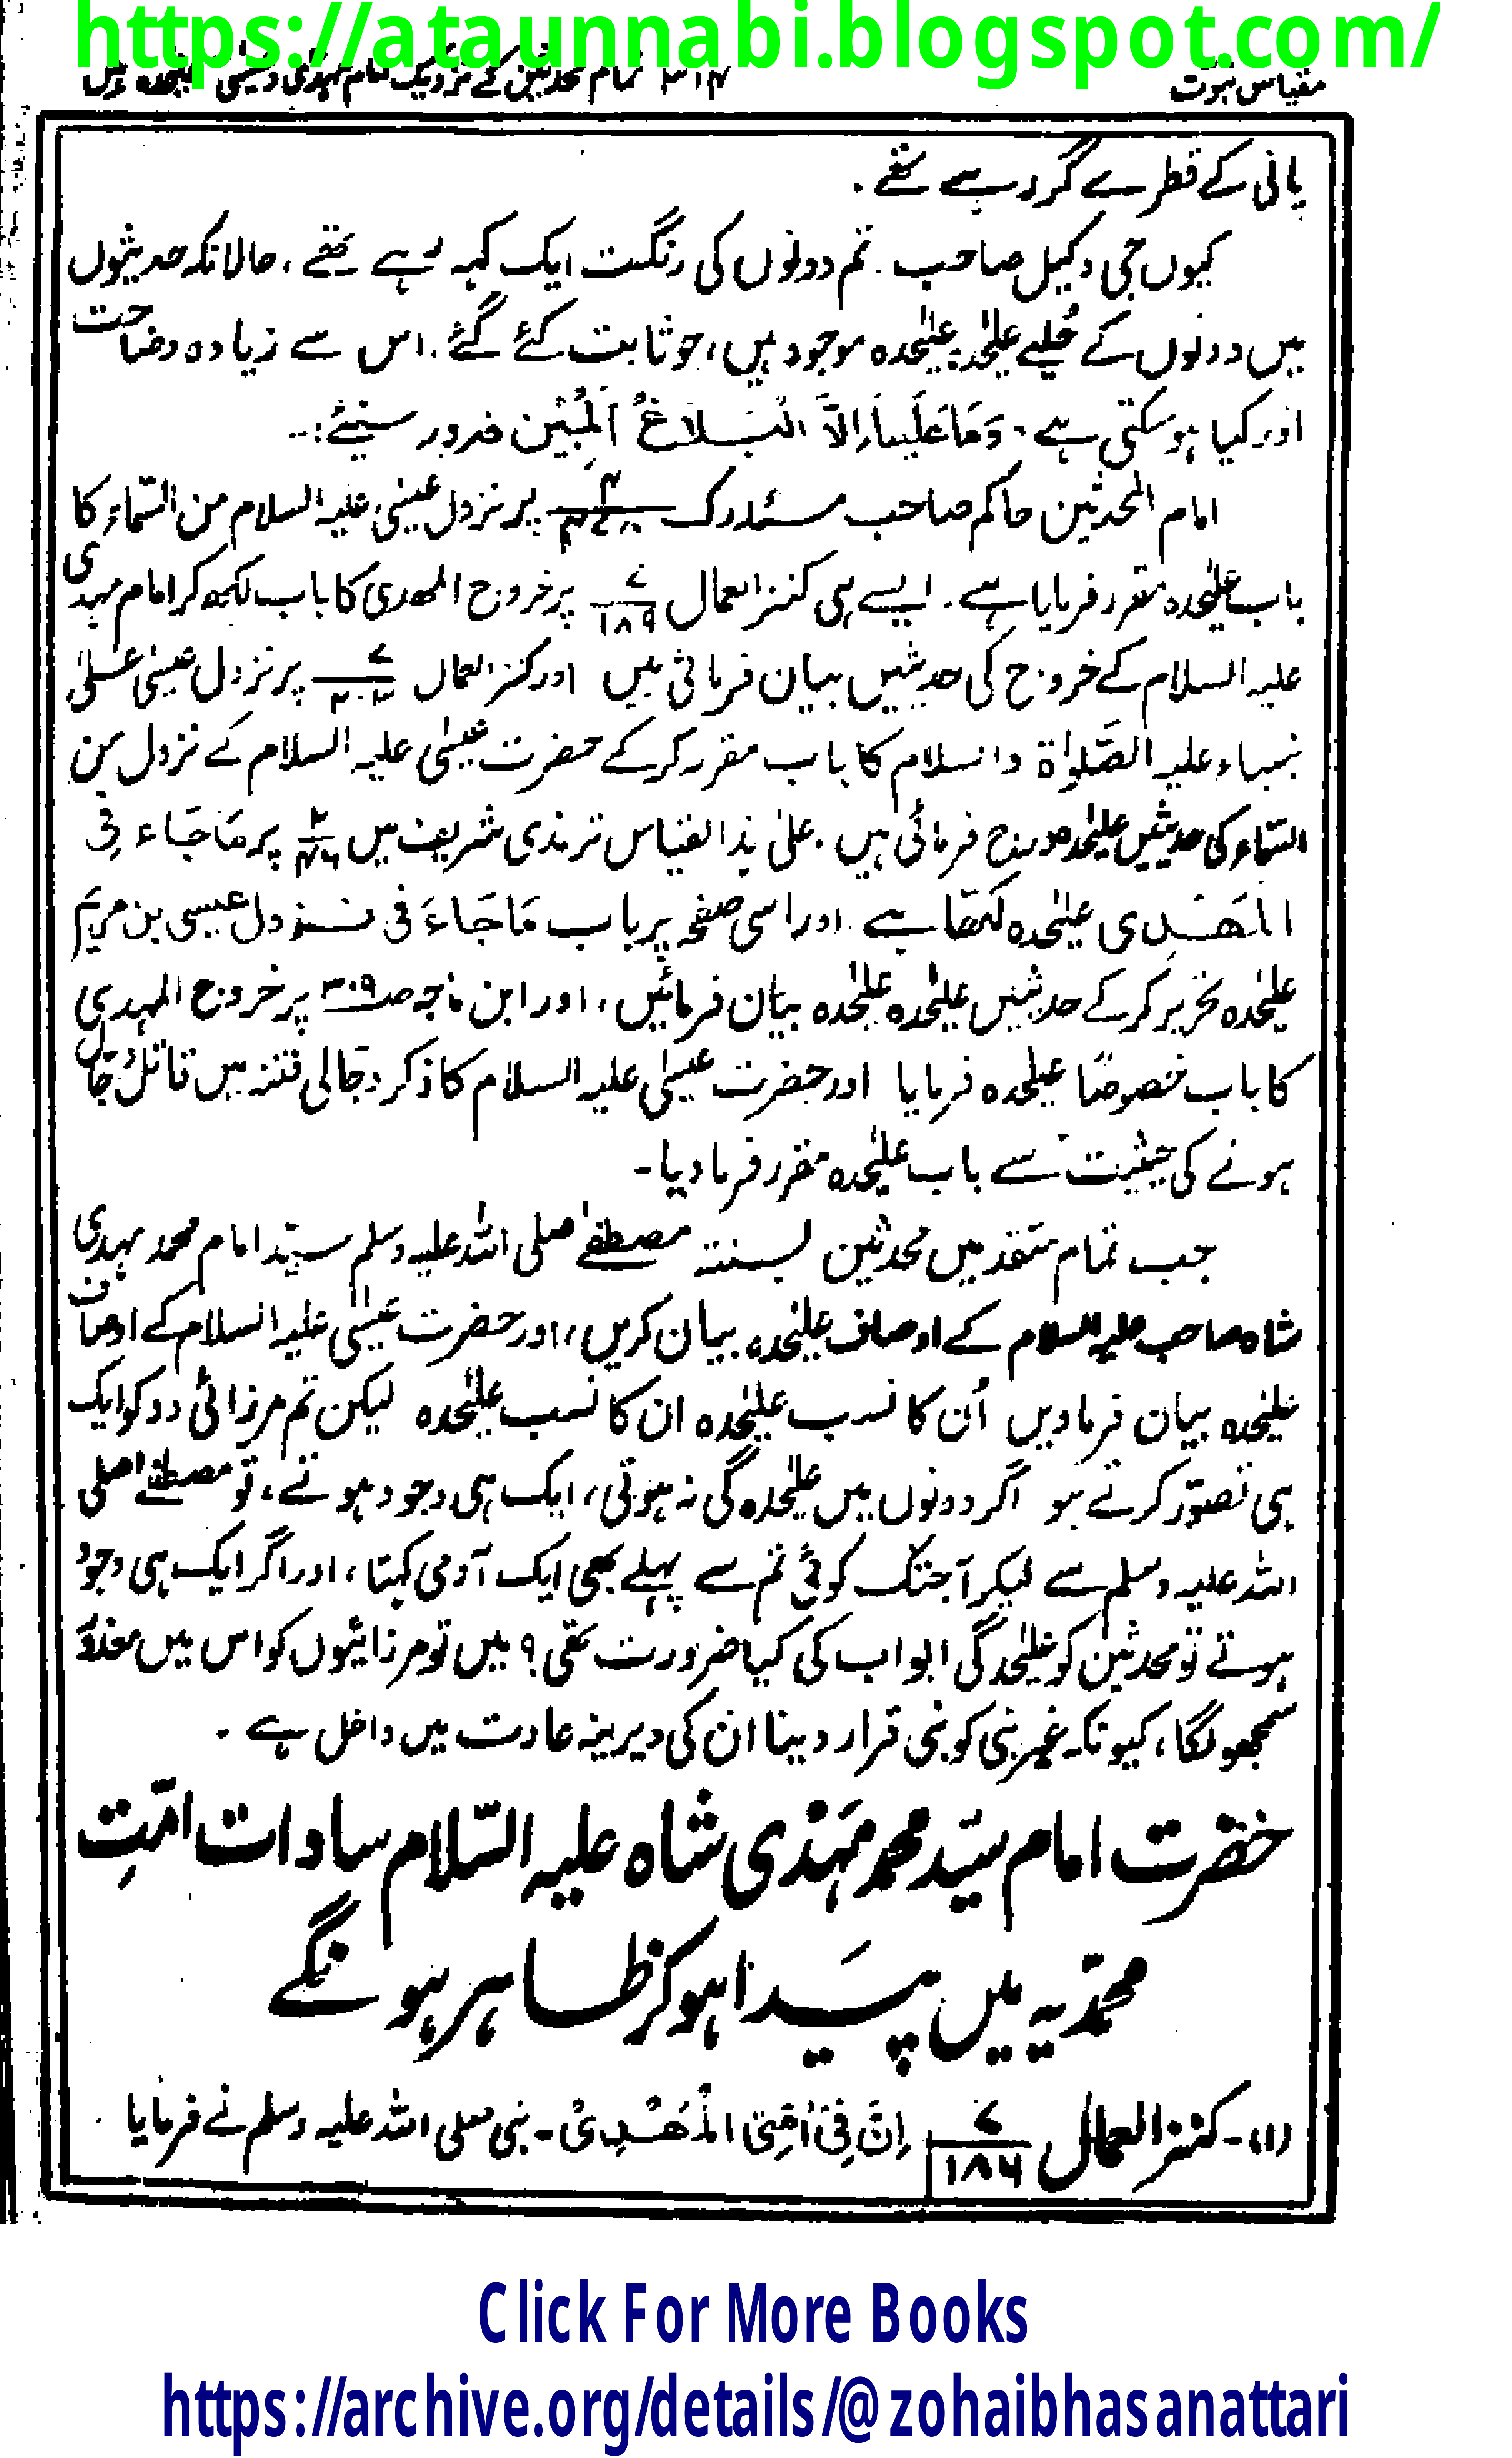 https://ataunnabi.blogspot.com/
مقیاس نبوت ۳۱۴ تمام محدثین کے نزدیک امام مہدی و عیسیٰ علیٰحدہ ہیں
پانی کے قطرے گر رہے تھے۔
کیوں جی وکیل صاحب۔ تم دونوں کی رنگت ایک کہہ رہے تھے، حالانکہ حدیثوں
میں دونوں کے حُلیے علیٰحدہ علیٰحدہ موجود ہیں، جو ثابت کئے گئے۔ اس سے زیادہ وضاحت
اور کیا ہو سکتی ہے۔ وَمَا عَلَینَا اِلاَّ الْبَلَاغُ الْمُبِیْن ضرور سنیئے:۔
امام المحدثین حاکم صاحب مستدرک پر نزول عیسیٰ علیہ السلام من السّماء کا
باب علیٰحدہ مقرر فرمایا ہے۔ ایسے ہی کنز العمال ۷/۱۸۹ پر خروج المھدی کا باب لکھ کر امام مہدی
علیہ السلام کے خروج کی حدیثیں بیان فرمائی ہیں اور کنز العمال پر نزول عیسیٰ علیٰ
نبیاء علیہ الصَّلوٰۃ والسلام کا باب مقرر کر کے حضرت عیسیٰ علیہ السلام کے نزول من
السّماء کی حدیثیں علیٰحدہ درج فرمائی ہیں۔ علیٰ ہذا القیاس ترمذی شریف میں ۲/۴۶ پر مَا جَاء فِی
الْمَھْدِی علیٰحدہ لکھا ہے۔ اور اسی صفحہ پر باب مَا جَاءَ فی نزول عیسی بن مریم
علیٰحدہ تحریر کر کے حدیثیں علیٰحدہ علیٰحدہ بیان فرمائیں، اور ابن ماجہ صـ۳۰۹ پر خروج المہدی
کا باب خصوصًا علیٰحدہ فرمایا اور حضرت عیسیٰ علیہ السلام کا ذکر دجالی فتنہ میں قاتل دجال
ہونے کی حیثیت سے باب علیٰحدہ مقرر فرما دیا۔
جب تمام متقدمیں محدثین لسنتہ مصطفےٰ صلی اللہ علیہ وسلم سیّد امام محمد مہدی
شاہ صاحب علیہ السلام کے اوصاف علیٰحدہ بیان کریں، اور حضرت عیسیٰ علیہ السلام کے اوصاف
علیٰحدہ بیان فرماویں اُن کا نسب علیٰحدہ ان کا نسب علیٰحدہ لیکن تم مرزائی دو کو ایک
ہی تصوّر کرتے ہو اگر دونوں میں علیٰحدہ گی نہ ہوتی، ایک ہی وجود ہوتے، تو مصطفےٰ صلی
اللہ علیہ وسلم سے لیکر آجتک کوئی تم سے پہلے بھی ایک آدمی کہتا، اور اگر ایک ہی وجود
ہوتے تو محدثین کو علیٰحدگی ابواب کی کیا ضرورت تھی؟ میں تو مرزائیوں کو اس میں معذور
سمجھوں گا، کیونکہ غیر نبی کو نبی قرار دینا ان کی دیرینہ عادت میں داخل ہے۔
حضرت امام سیّد محمد مَہْدی شاہ علیہ السّلام سادات امّتِ
محمّدیہ میں پَیدا ہو کر ظاہر ہونگے
(۱)۔ کنز العمال ۷/۱۸۶ اِنَّ فِیْ اُمَّتِیْ الْمَھْدِیْ۔ نبی صلی اللہ علیہ وسلم نے فرمایا
Click For More Books
https://archive.org/details/@zohaibhasanattari